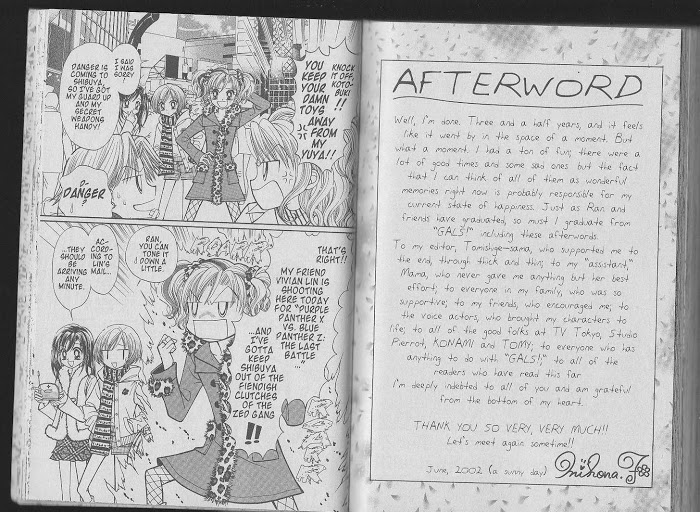 KNOCK
IT OFF,
KOTO-
BUKI
YOU
KEEP
YOUR
DAMN
TOYS
AWAY
FROM
MY
YUYA!!
!!
I SAID
I WAS
SORRY
DANGER IS
COMING TO
SHIBUYA,
SO I'VE GOT
MY GUARD UP
AND MY
SECRET
WEAPONS
HANDY!
D-
DANGER?
THAT'S
RIGHT!!
MY FRIEND
VIVIAN LIN IS
SHOOTING
HERE TODAY
FOR "PURPLE
PANTHER X
VS. BLUE
PANTHER Z:
THE LAST
BATTLE
..."
...AND
I'VE
GOTTA
KEEP
SHIBUYA
OUT OF THE
FIENDISH
CLUTCHES
OF THE
ZED GANG
!!
RAN,
YOU CAN
TONE IT
DOWN A
LITTLE.
AC-
CORD-
ING TO
LIN'S
MAIL...
...THEY
SHOULD
BE
ARRIVING
ANY
MINUTE.
AFTERWORD
Well, I'm done. Three and a half years, and it feels
like it went by in the space of a moment. But
what a moment. I had a ton of fun; there were a
lot of good times and some sad ones but the fact
that I can think of all of them as wonderful
memories right now is probably responsible for my
current state of happiness. Just as Ran and
friends have graduated, so must I graduate from
"GALS!" including these afterwords.
To my editor, Tomishige-sama, who supported me to
the end, through thick and thin; to my "assistant,"
Mama, who never gave me anything but her best
effort; to everyone in my family, who was so
supportive; to my friends, who encouraged me; to
the voice actors, who brought my characters to
life; to all of the good folks at TV Tokyo, Studio
Pierrot, KONAMI and TOMY; to everyone who has
anything to do with "GALS!"; to all of the
readers who have read this far
I'm deeply indebted to all of you and am grateful
from the bottom of my heart.
THANK YOU SO VERY, VERY MUCH!!
Let's meet again sometime!!
June, 2002 (a sunny day) Mihona. F